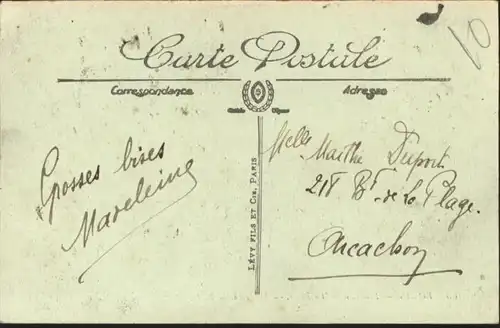 10
Carte Postale
Correspondance
Adresse
LÉVY FILS ET Cie, PARIS
Grosses bises
Madeleine
Melle Marthe Duport
218 Bd de la Plage.
Arcachon